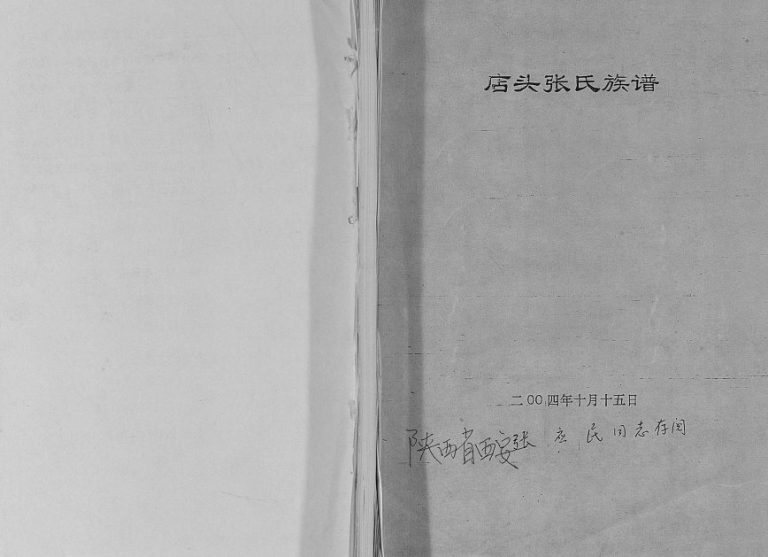 店头张氏族谱
二00四年十月十五日
陕西省西安张 民同志存阅